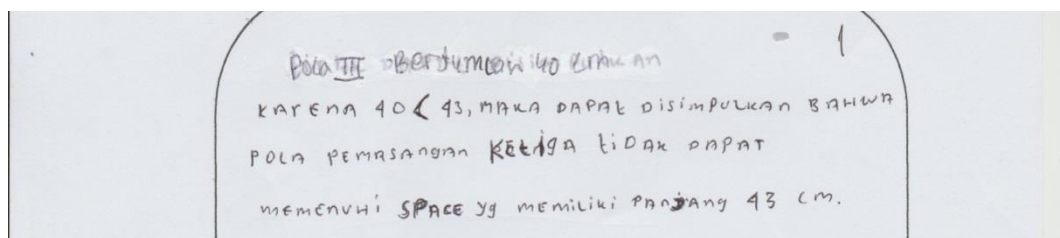 1
Pola III Berjumlah 40
KArENA 40 < 43, MAKA DAPAt DisimPULKAN BAHWA
POLA PEMASANGAN KEtiGA tiDAK DAPAT
MEMENUHi SPACE yg MEMiLiKi PANJANG 43 CM.